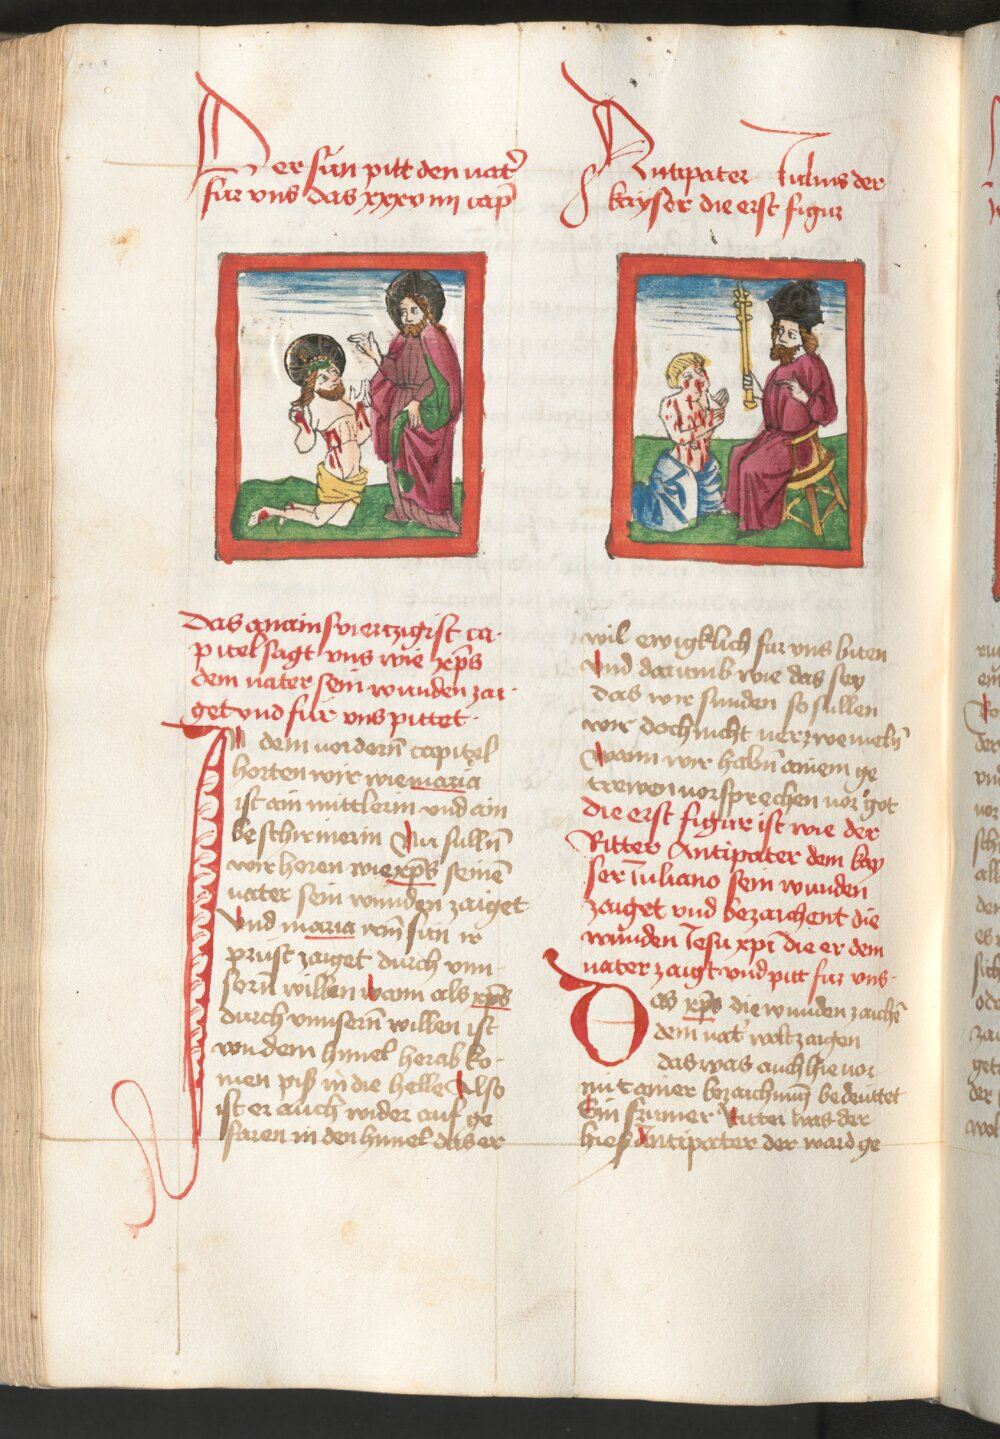 Der sun pitt den vat̾
fur vns das xxxviiii cap̾
Antipater Julius der
kayser die erst figur
das anainsvierczigist ca-
pitel sagt vns wie xp̄s
dem vater sein wunden zai-
get vnd fur vns pittet
In dem vordern̄ capitel
horten wir wie maria
ist ain mittlerin vnd ain
beschirmerin Nu sulln̄
wir heren wie xp̄s seinē
vater sein wunden zaiget
Vnd maria irm̄ sun ir
prust zaiget durch vnn-
sern̄ willen wann als xp̄s
durch vnnsern̄ willen ist
von dem himel herab ko-
men piß in die helle Also
ist er auch wider auf ge
faren in den himel das er
wil ewigklich fur vns biten
Vnd darumb wie das sey
das wir sunden so sullen
wir doch nicht verzweiueln̄
wann wir habn̄ ainem ge
trewen vorsprechen vor got
die erst figur ist wie der
Ritter Antipater dem kay
ser Juliano sein wunden
zaiget vnd bezaichent die
wunden Jesu xp̄i die er dem
vater zaigt vnd pitt fur vns
Das xp̄s die wunden zaichn̄
dem vat̾ wolt zaigen
das was auch hie vor
mit ainer bezaichnūg bedeuttet
Ein frumer Ritter was der
hieß Antipater der ward ge